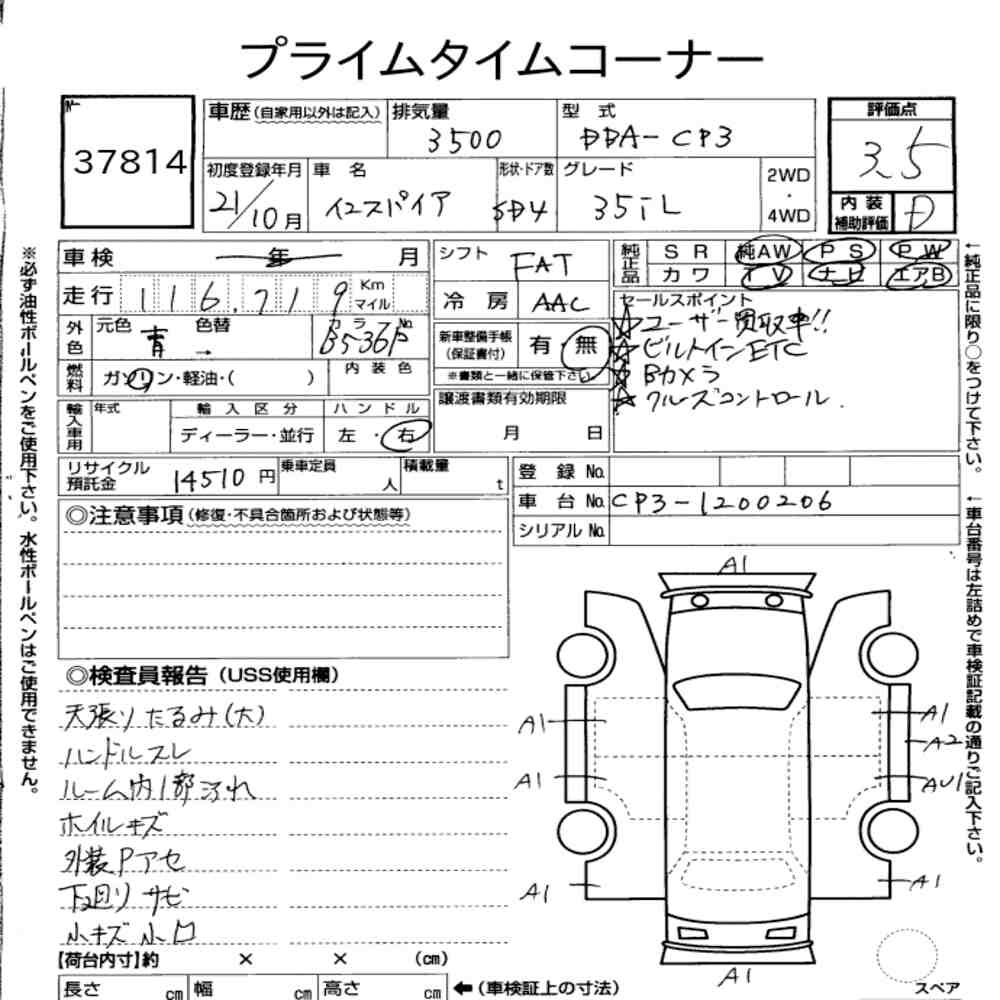 プライムタイムコーナー
No.
37814
車歴(自家用以外は記入)
排気量
3500
型式
DBA-CP3
評価点
3.5
初度登録年月
21/10月
車名
インスパイア
形状・ドア数
SD4
グレード
35iL
2WD
・
4WD
内装
補助評価
D
車検 年 月
シフト
FAT
純正品
SR 純AW PS PW
カワ TV ナビ エアB
走行 116,719 Km
マイル
冷房 AAC
セールスポイント
☆ユーザー買取車!!
☆ビルトインETC
☆Bカメラ
☆クルーズコントロール.
外色
元色 青
色替 →
カラーNo.
B536P
新車整備手帳
(保証書付)
有・無
※書類と一緒に保管下さい。
燃料
ガソリン・軽油・( )
内装色
譲渡書類有効期限
月 日
輸入車用
年式
輸入区分
ディーラー・並行
ハンドル
左・右
リサイクル
預託金
14510円
乗車定員
人
積載量
t
登録No.
車台No. CP3-1200206
シリアルNo.
◎注意事項(修復・不具合箇所および状態等)
◎検査員報告(USS使用欄)
天張りたるみ(大)
ハンドルスレ
ルーム内1部汚れ
ホイルキズ
外装Pアセ
下廻りサビ
小キズ小凹
A1
A1
A1
A2
A1
AU1
A1
A1
A1
スペア
【荷台内寸】約 × × (cm)
長さ cm 幅 cm 高さ cm ←(車検証上の寸法)
※必ず油性ボールペンをご使用下さい。水性ボールペンはご使用できません。
←純正品に限り○をつけて下さい。
←車台番号は左詰めで車検証記載の通りご記入下さい。